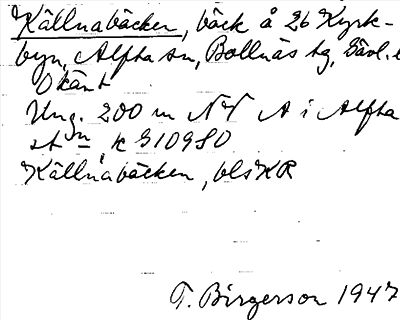 Källnabäcken, bäck å 26 Kyrk-
byn, Alfta sn, Bollnäs tg, Gävl. l
Okänt
Ung. 200 m NV A i Alfta
stn k G10980
Källnabäcken, bls KR
T. Birgerson 1947